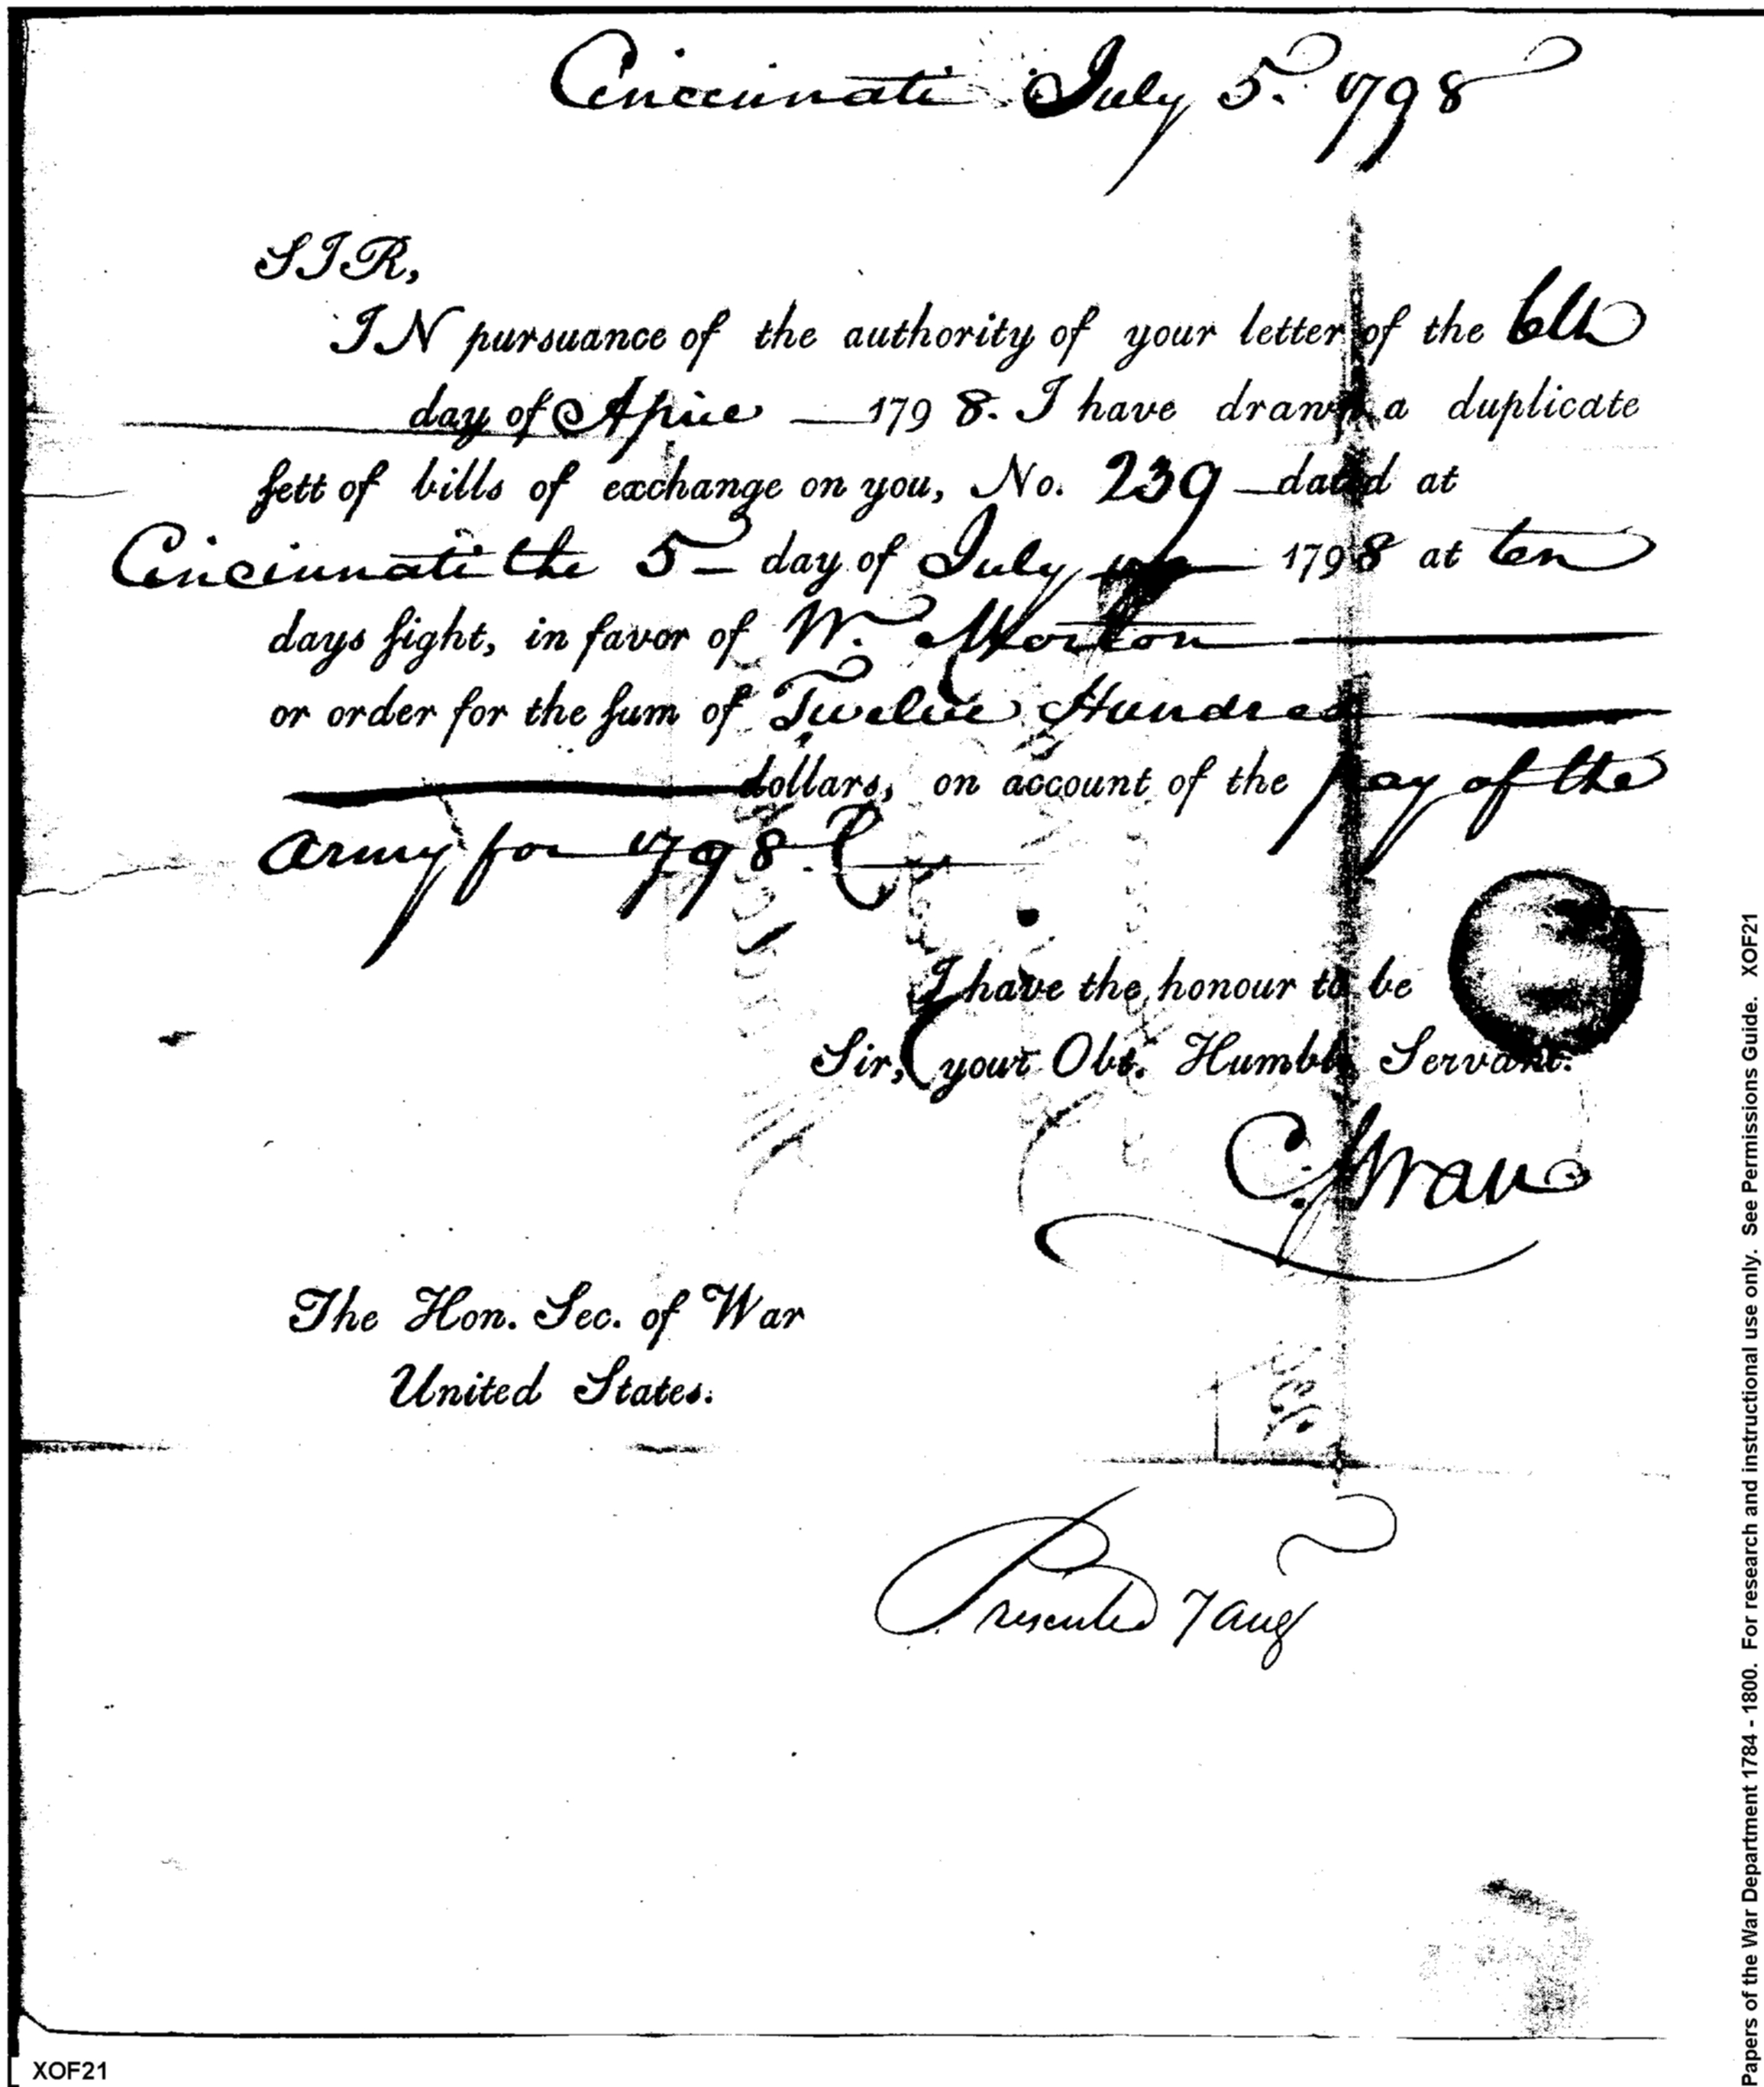 Cincinnati July 5. 1798
SIR,
IN pursuance of the authority of your letter of the 6th
day of April 1798. I have drawn a duplicate
sett of bills of exchange on you, No. 239 dated at
Cincinnati the 5 day of July 1798 at ten
days sight, in favor of W. Morton
or order for the sum of Twelve Hundred
dollars, on account of the pay of the
Army for 1798.
I have the honour to be
Sir, your Obt. Humble Servant.
C. Swan
The Hon. Sec. of War
United States.
Presented 7 Aug
XOF21
Papers of the War Department 1784 - 1800. For research and instructional use only. See Permissions Guide. XOF21